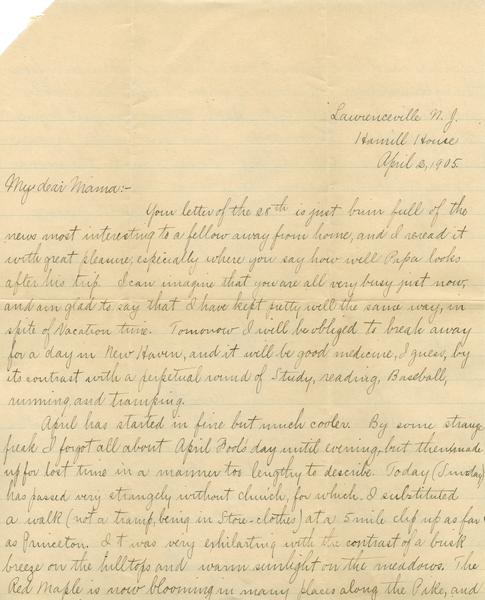 Lawrenceville N. J.
Hamill House
April 2, 1905.
My dear Mama:-
Your letter of the 28th is just brim full of the
news most interesting to a fellow away from home, and I reread it
with great pleasure, especially where you say how well Papa looks
after his trip. I can imagine that you are all very busy just now,
and am glad to say that I have kept pretty well the same way, in
spite of Vacation time. Tomorrow I will be obliged to break away
for a day in New Haven, and it will be good medicine, I guess, by
its contrast with a perpetual round of Study, reading, Baseball,
running, and tramping.
April has started in fine but much cooler. By some strange
freak I forgot all about April Fool's day until evening, but then made
up for lost time in a manner too lengthy to describe. Today (Sunday)
has passed very strangely without church, for which I substituted
a walk (not a tramp, being in Store-clothes) at a 5 mile clip up as far
as Princeton. It was very exhilarting with the contrast of a brisk
breeze on the hilltops and warm sunlight on the meadows. The
Red Maple is now blooming in many places along the Pike, and